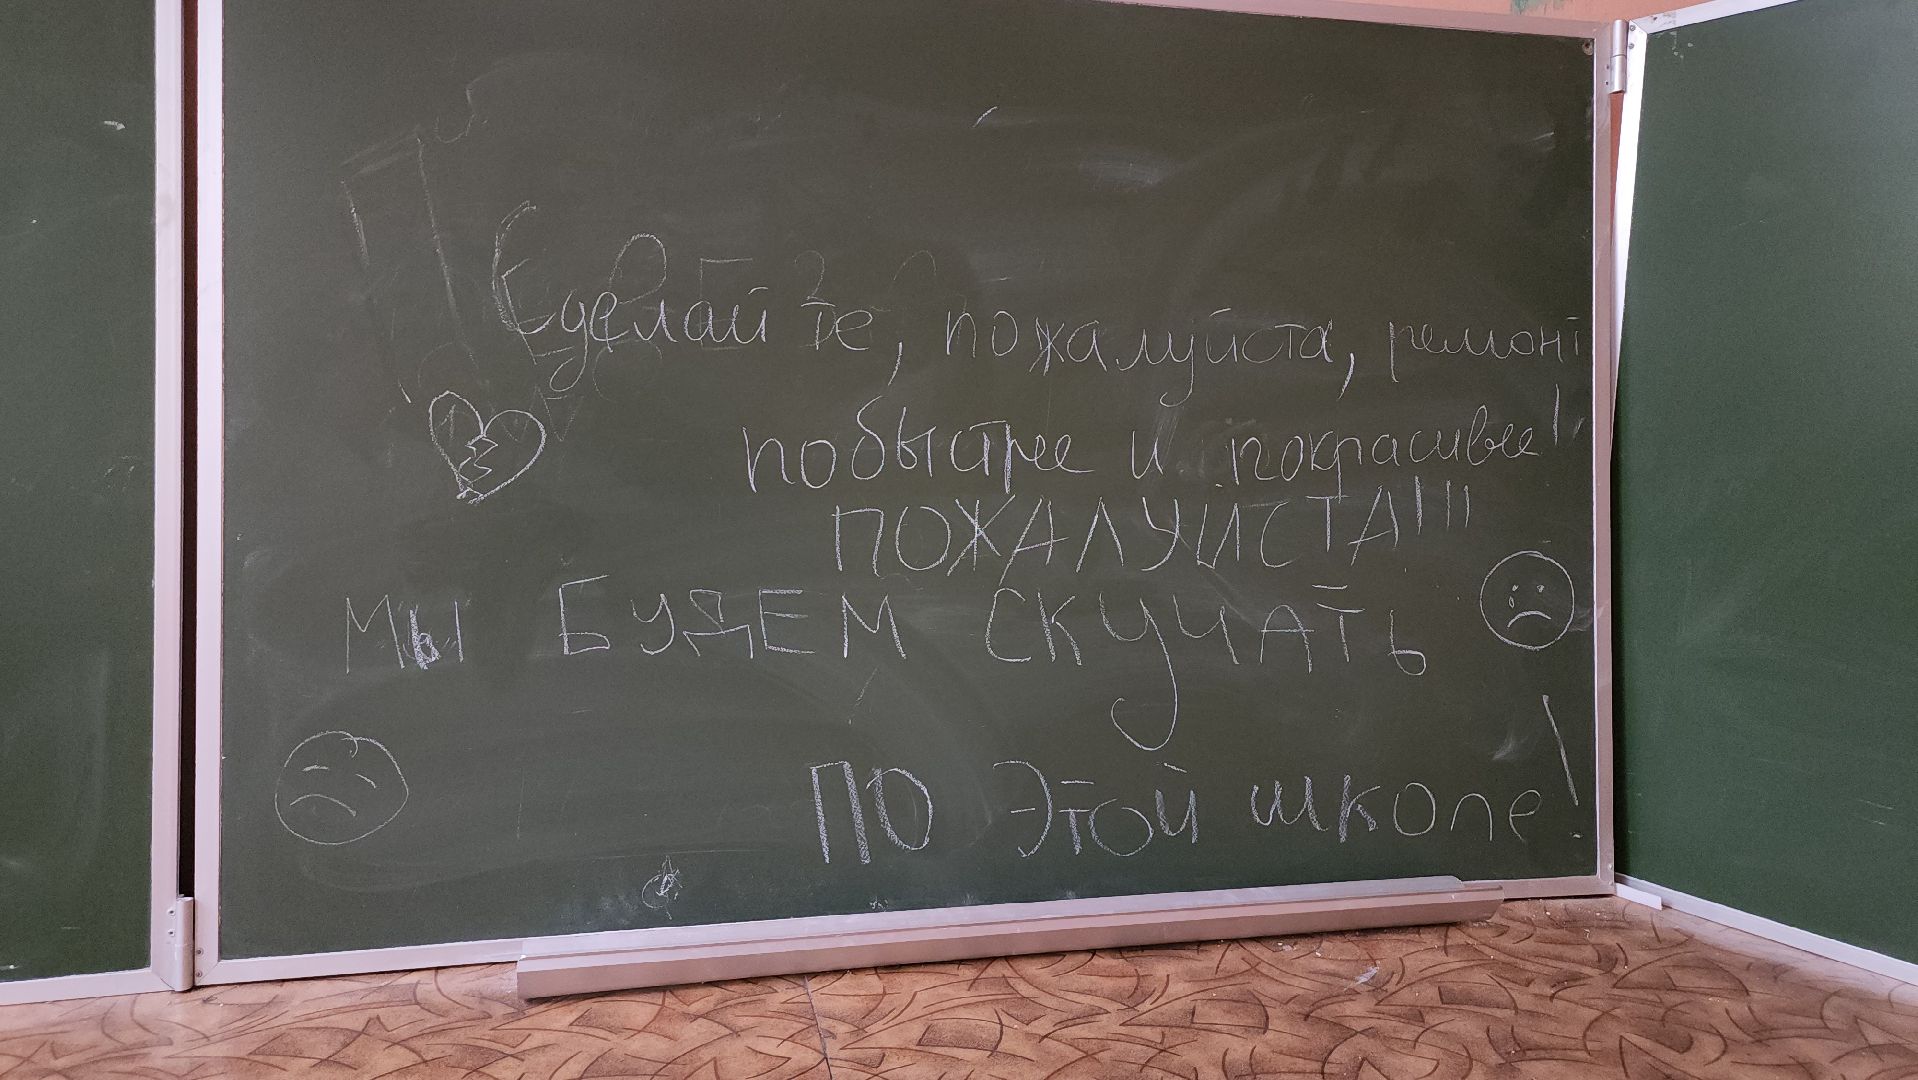 Сделайте, пожалуйста, ремонт
побыстрее и покрасивее!
ПОЖАЛУЙСТА!!!
МЫ БУДЕМ СКУЧАТЬ
ПО ЭТОЙ ШКОЛЕ!